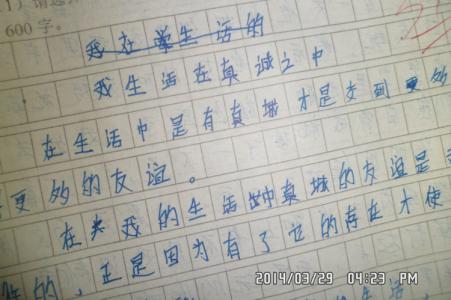 600字。
我在学生活的
我生活在真诚之中
在生活中是有真城才是交到更多
更多的友谊。
在我的生活中真城的友谊是
的,正是因为有了它的存在才使
2014/03/29 04:23 PM